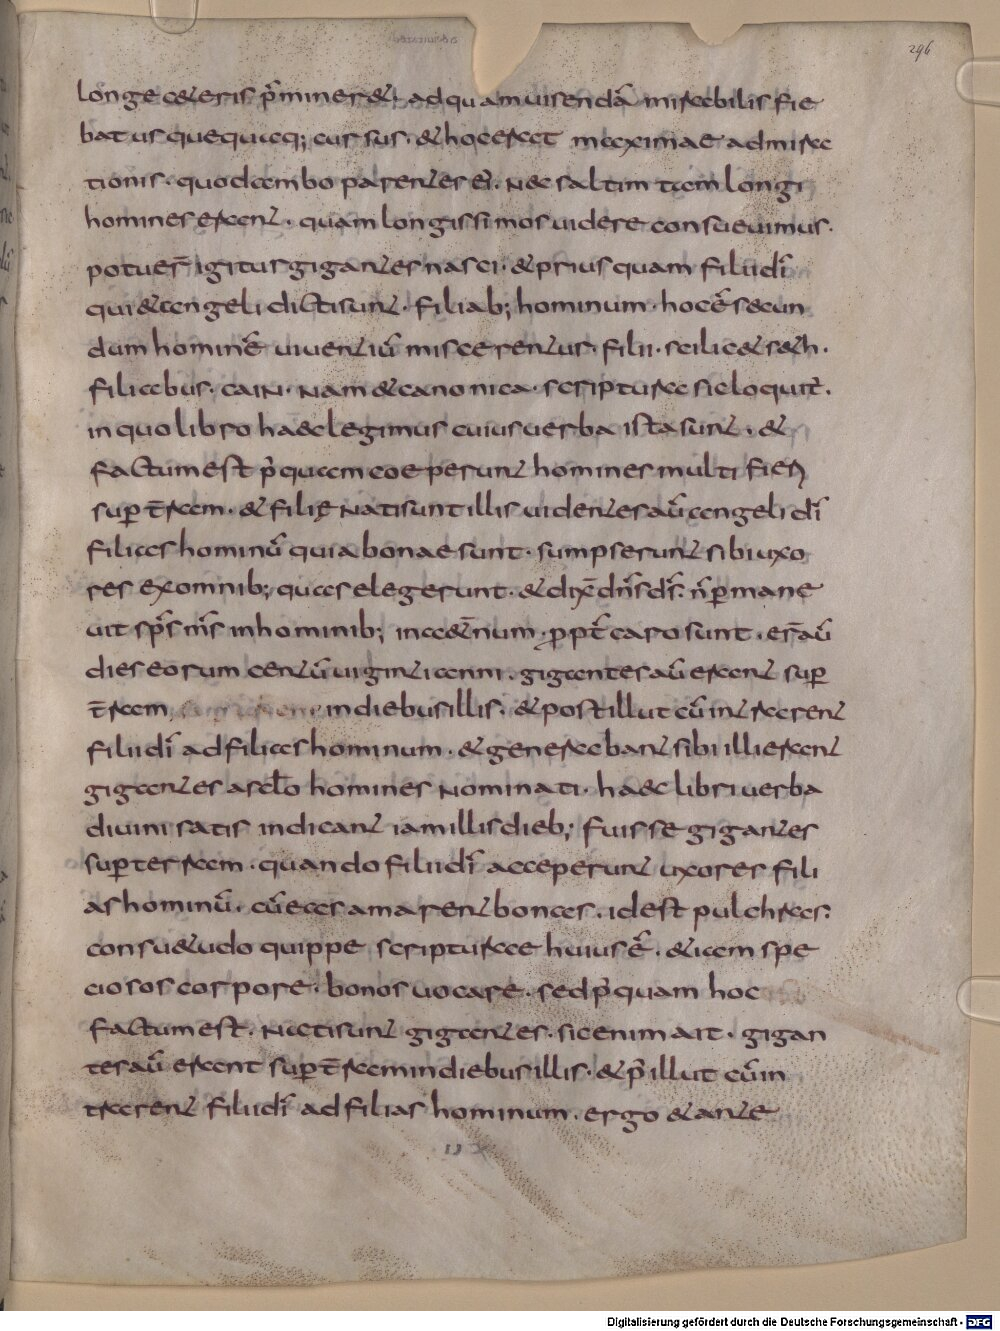 296
longe ceteris p̄mineret; ad quam uisendā mirabilis fie
bat usquequaq; cursus· et hoc erat maximae admira
tionis· quod ambo parentes eī· nec saltim tam longi
homines erant· quam longissimos uidere consueuimus·
potuer̄ igitur gigantes nasci· et prius quam filii dī
qui et angeli dicti sunt· filiab; hominum· hoc ē secun
dum hominē uiuentiū miscerentur· filii· scilicet seth·
filiabus· cain· nam et canonica· scriptura sic loquit̄·
in quo libro haec legimus cuius uerba ista sunt· et
factum est p̄quam coeperunt homines multi fieri
sup t̄ram· et filię nati sunt illis uidentes aū angeli dī
filias hominū quia bonae sunt· sumpserunt sibi uxo
res ex omnib; quas elegerunt· et dix̄ dn̄s dī· n̄ p̄mane
uit sp̄s m̄s in hominib; in aet̄num· ppt̄ caro sunt· er̄ aū
dies eorum centū uiginti anni· gigantes aū erant sup
t̄ram in diebus illis· et post illut cū intrarent
filii dī ad filias hominum· et generabant sibi illi erant
gigantes a sc̄lo homines nominati· haec libri uerba
diuini satis indicant iam illis dieb; fuisse gigantes
sup terram· quando filii dī acceperunt uxores fili
as hominū· cū eas amarent bonas· id est pulchras·
consuetudo quippe scripturae huius ē· etiam spe
ciosos corpore· bonos uocare· sed p̄quam hoc
factum est· nati sunt gigantes· sic enim ait· gigan
tes aū erant sup t̄ram in diebus illis· et p̄ illut cū in
trarent filii dī ad filias hominum· ergo et ante
Digitalisierung gefördert durch die Deutsche Forschungsgemeinschaft - DFG